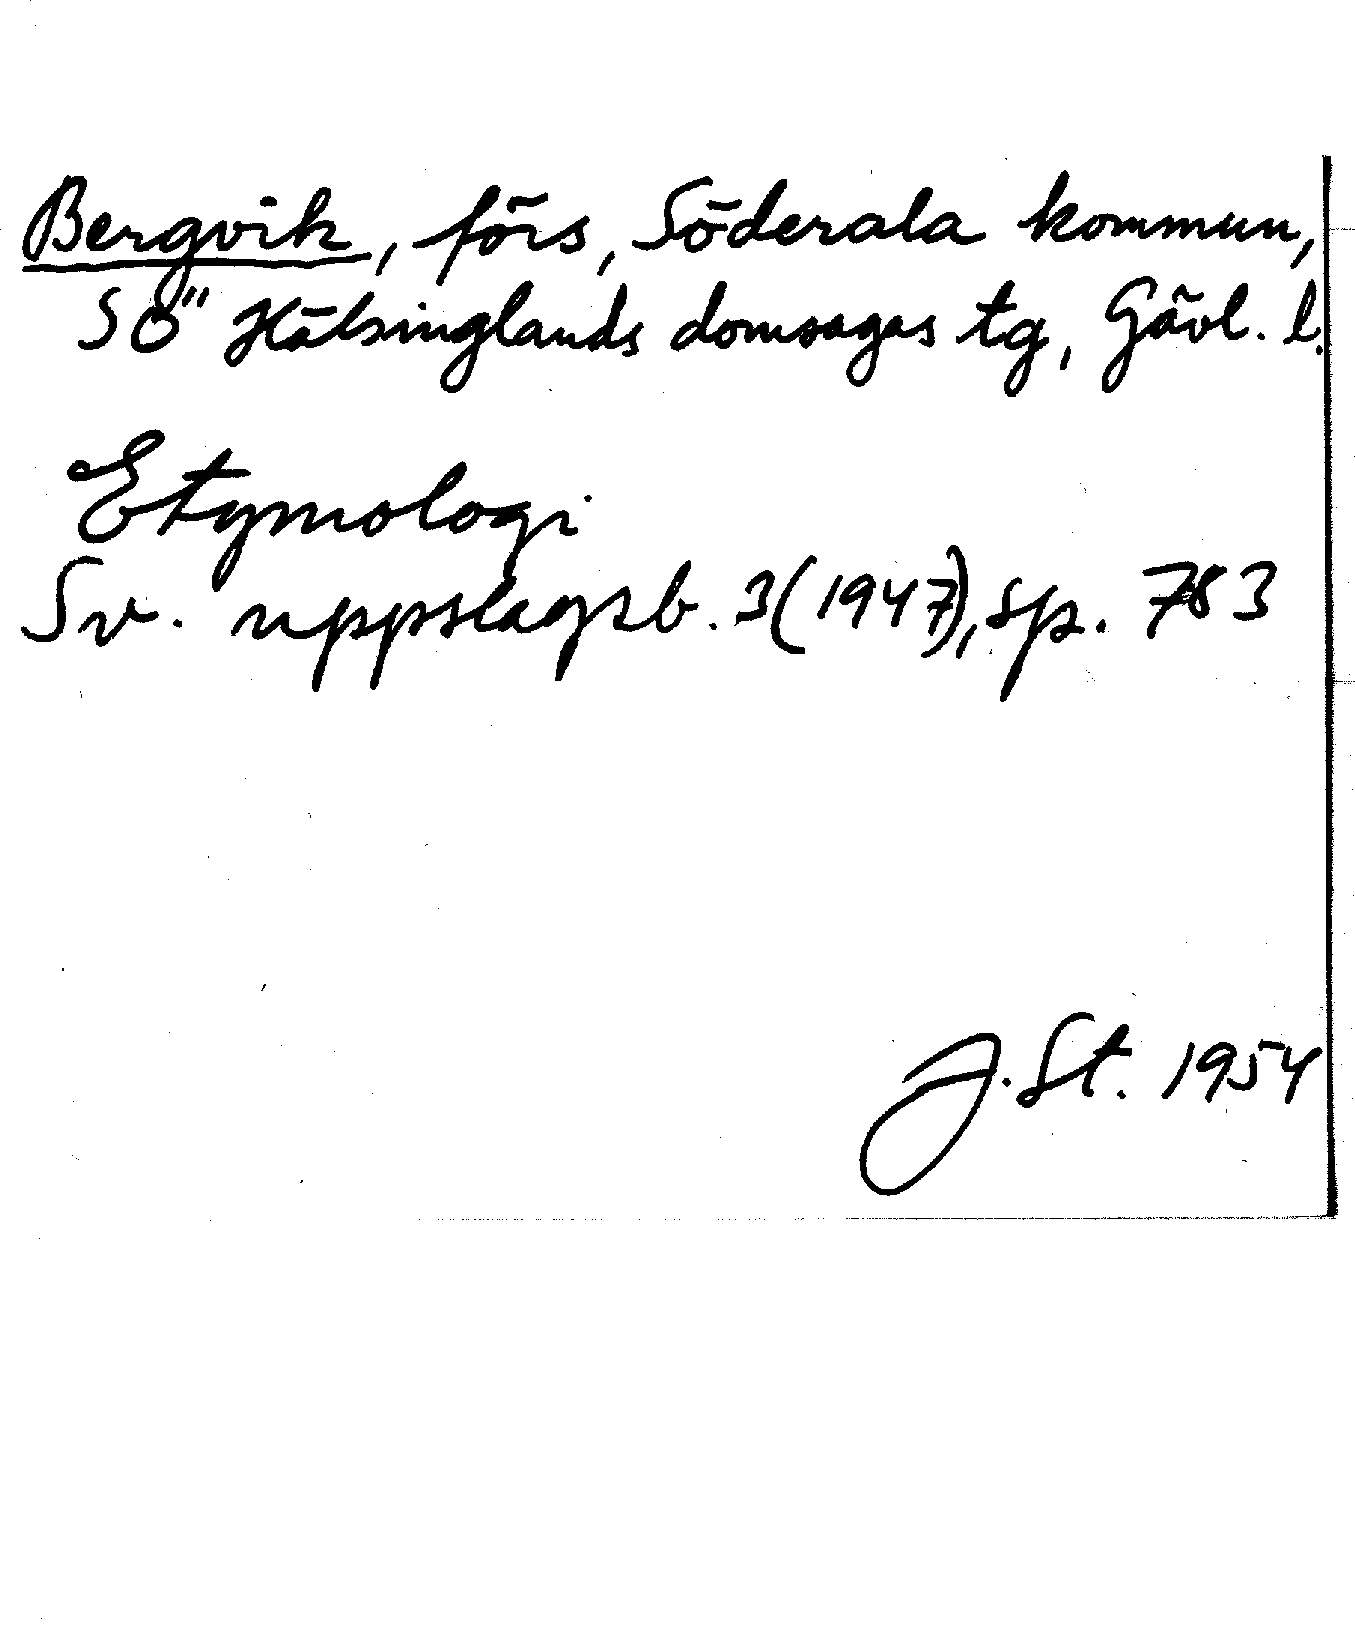 Bergvik, förs, Söderala kommun,
SÖ Hälsinglands domsagas tg, Gävl. l.
Etymologi
Sv. uppslagsb. 3(1947), sp. 783
J. St. 1954